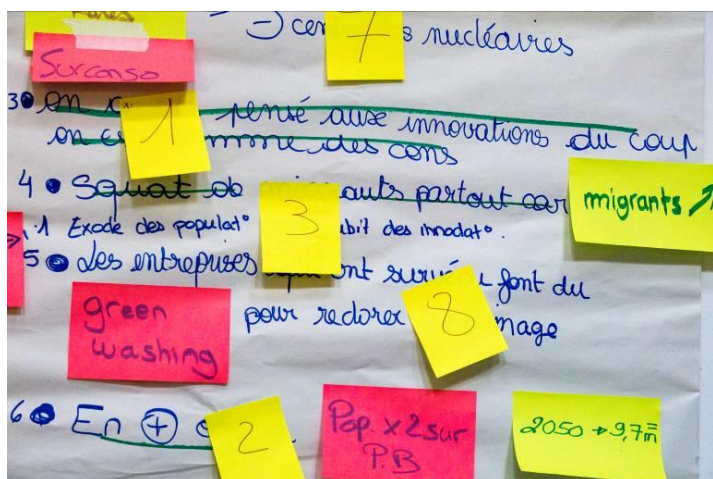 Surconso
7
-) cen s nucléaires
3 on c 1 pensé aux innovations du coup
on c mme des cons
4 Squat de 3 ants partout car migrants ↗
.1 Exode des populat° ubit des inodat°.
5 Les entreprises ont survé u font du
green washing
pour redorer 8 mage
6 En + 2
Pop. x2 sur P.B
2050 → 9,7